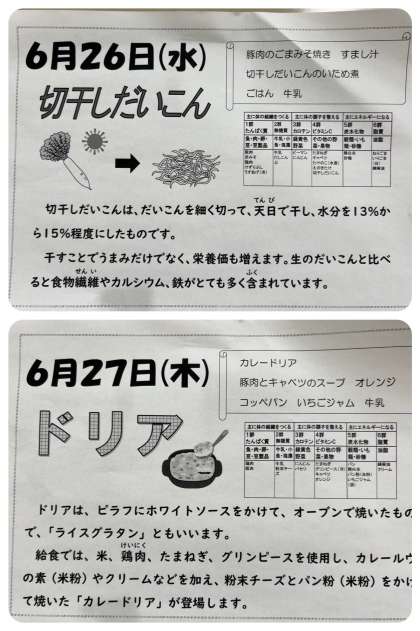 6月26日(水)
豚肉のごまみそ焼き すまし汁
切干しだいこんのいため煮
ごはん 牛乳
切干しだいこん
主に体の組織をつくる 主に体の調子を整える 主にエネルギーになる
1群 2群 3群 4群 5群 6群
たんぱく質 無機質 カロテン ビタミンC 炭水化物 脂質
魚・肉・卵・豆・豆製品 牛乳・小魚・海藻 緑黄色野菜 その他の野菜・果物 穀類・いも類・砂糖 油脂
切干しだいこんは、だいこんを細く切って、天日で干し、水分を13%か
てんぴ
ら15%程度にしたものです。
干すことでうまみだけでなく、栄養価も増えます。生のだいこんと比べ
せんい ふく
ると食物繊維やカルシウム、鉄がとても多く含まれています。
6月27日(木)
カレードリア
豚肉とキャベツのスープ オレンジ
コッペパン いちごジャム 牛乳
ドリア
主に体の組織をつくる 主に体の調子を整える 主にエネルギーになる
1群 2群 3群 4群 5群 6群
たんぱく質 無機質 カロテン ビタミンC 炭水化物 脂質
魚・肉・卵・豆・豆製品 牛乳・小魚・海藻 緑黄色野菜 その他の野菜・果物 穀類・いも類・砂糖 油脂
ドリアは、ピラフにホワイトソースをかけて、オーブンで焼いたもの
で、「ライスグラタン」ともいいます。
けいにく
給食では、米、鶏肉、たまねぎ、グリンピースを使用し、カレールウ
の素(米粉)やクリームなどを加え、粉末チーズとパン粉(米粉)をかけ
て焼いた「カレードリア」が登場します。